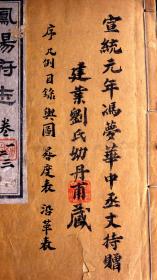 宣統元年馮夢華中丞丈持贈
建業劉氏幼丹甫藏
序 凡例 目錄 輿圖 晷度表 沿革表
鳳陽府志 卷一 三